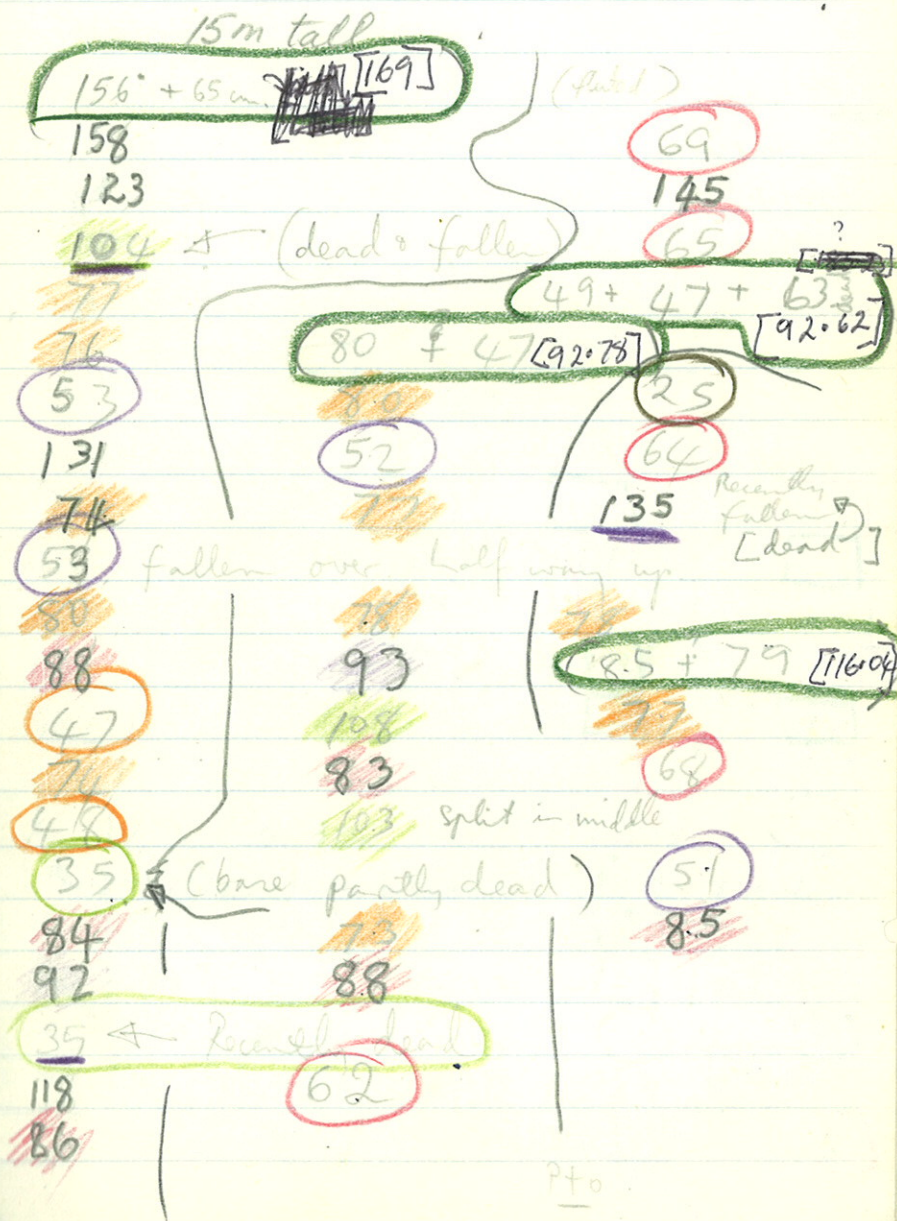 15m tall
156 + 65 cm. [169]
158
123
104 ← (dead & fallen)
77
76
53
131
74
53 fallen over half way up.
80
88
47
74
48
35 ← (base partly dead)
84
92
35 ← Recently dead
118
86
80 + 47 [92.78]
80
52
78
93
108
83
103 split in middle
73
88
62
(fluted)
69
145
65
?
49 + 47 + 63 dead [92.62]
25
64
135 Recently fallen
[dead]
8.5 + 79 [116.04]
77
68
51
8.5
P t o